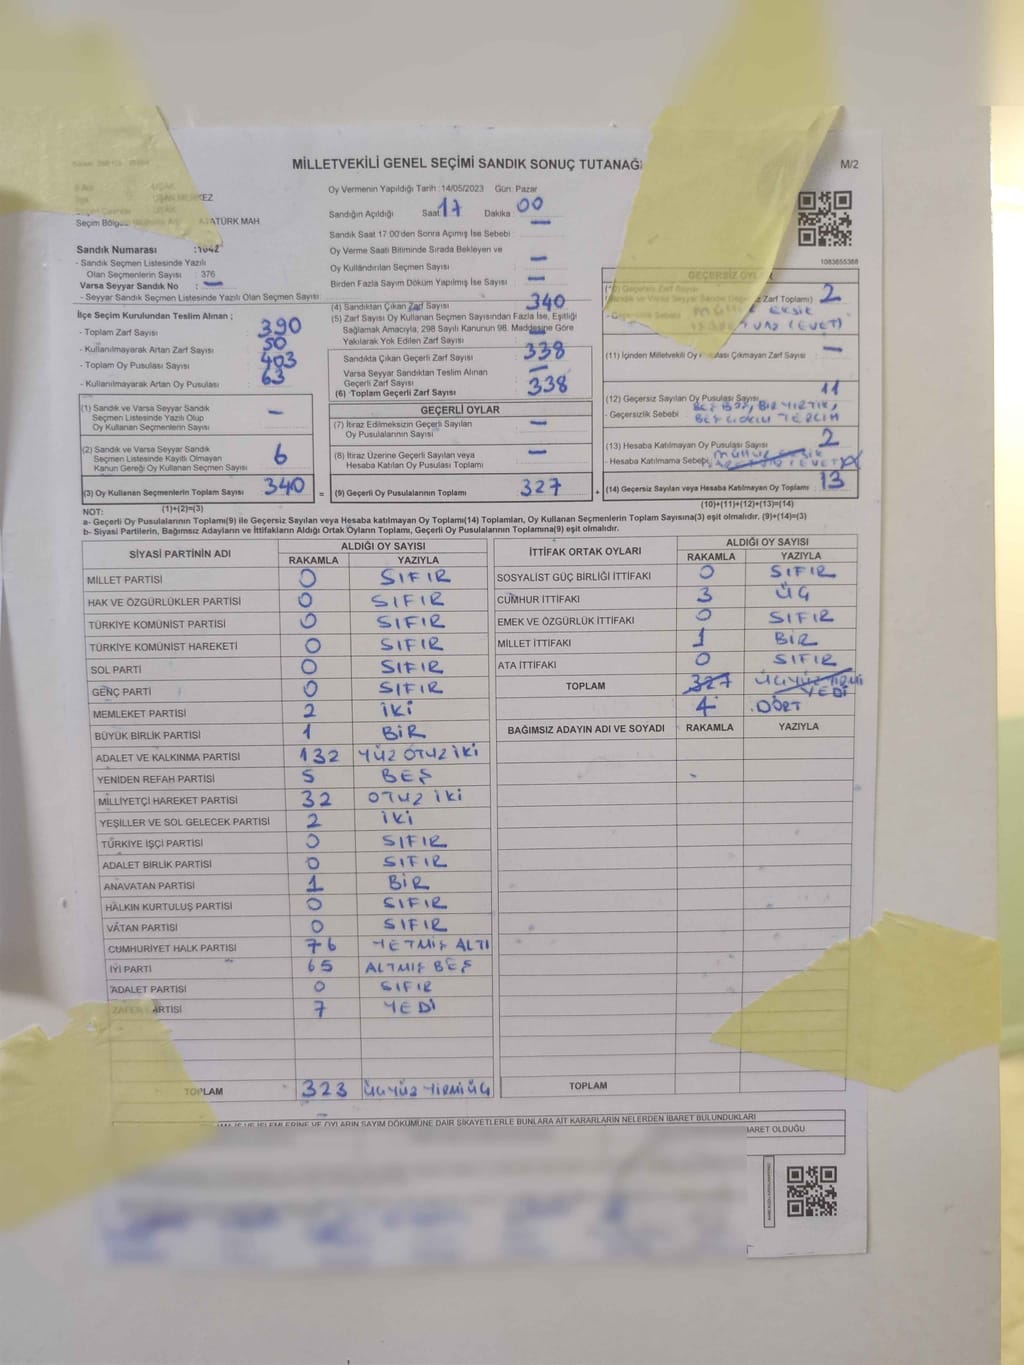 MİLLETVEKİLİ GENEL SEÇİMİ SANDIK SONUÇ TUTANAĞI
M/2
Oy Vermenin Yapıldığı Tarih :14/05/2023 Gün: Pazar
Seçim Bölgesi ATATÜRK MAH.
Sandığın Açıldığı Saat 17 Dakika: 00
Sandık Saat 17:00'den Sonra Açımış İse Sebebi —
Oy Verme Saati Bitiminde Sırada Bekleyen ve
Oy Kullandırılan Seçmen Sayısı —
Birden Fazla Sayım Döküm Yapılmış İse Sayısı —
1083655388
Sandık Numarası :1042
- Sandık Seçmen Listesinde Yazılı
Olan Seçmenlerin Sayısı : 376
Varsa Seyyar Sandık No : —
- Seyyar Sandık Seçmen Listesinde Yazılı Olan Seçmen Sayısı:
İlçe Seçim Kurulundan Teslim Alınan ;
- Toplam Zarf Sayısı 390
- Kullanılmayarak Artan Zarf Sayısı 50
- Toplam Oy Pusulası Sayısı 403
- Kullanılmayarak Artan Oy Pusulası 63
(1) Sandık ve Varsa Seyyar Sandık
Seçmen Listesinde Yazılı Olup
Oy Kullanan Seçmenlerin Sayısı —
(2) Sandık ve Varsa Seyyar Sandık
Seçmen Listesinde Kayıtlı Olmayan
Kanun Gereği Oy Kullanan Seçmen Sayısı 6
(3) Oy Kullanan Seçmenlerin Toplam Sayısı 340 =
(4) Sandıktan Çıkan Zarf Sayısı 340
(5) Zarf Sayısı Oy Kullanan Seçmen Sayısından Fazla İse, Eşitliği
Sağlamak Amacıyla, 298 Sayılı Kanunun 98. Maddesine Göre
Yakılarak Yok Edilen Zarf Sayısı —
Sandıkta Çıkan Geçerli Zarf Sayısı 338
Varsa Seyyar Sandıktan Teslim Alınan
Geçerli Zarf Sayısı —
(6) Toplam Geçerli Zarf Sayısı 338
GEÇERLİ OYLAR
(7) İtiraz Edilmeksizin Geçerli Sayılan
Oy Pusulalarının Sayısı —
(8) İtiraz Üzerine Geçerli Sayılan veya
Hesaba Katılan Oy Pusulası Toplamı —
(9) Geçerli Oy Pusulalarının Toplamı 327 +
GEÇERSİZ OYLAR
Zarf Toplamı) 2
MÜHÜR EKSİK
(EVET)
(11) İçinden Milletvekili Oy Pusulası Çıkmayan Zarf Sayısı —
(12) Geçersiz Sayılan Oy Pusulası Sayısı 11
- Geçersizlik Sebebi BEŞ BOŞ, BİR YIRTIK,
BEŞ ÇOKLU TERCİH
(13) Hesaba Katılmayan Oy Pusulası Sayısı 2
- Hesaba Katılmama Sebebi
(14) Geçersiz Sayılan veya Hesaba Katılmayan Oy Toplamı 13
NOT: (1)+(2)=(3) (10)+(11)+(12)+(13)=(14)
a- Geçerli Oy Pusulalarının Toplamı(9) ile Geçersiz Sayılan veya Hesaba katılmayan Oy Toplamı(14) Toplamları, Oy Kullanan Seçmenlerin Toplam Sayısına(3) eşit olmalıdır. (9)+(14)=(3)
b- Siyasi Partilerin, Bağımsız Adayların ve İttifakların Aldığı Ortak Oyların Toplamı, Geçerli Oy Pusulalarının Toplamına(9) eşit olmalıdır.
SİYASİ PARTİNİN ADI ALDIĞI OY SAYISI
RAKAMLA YAZIYLA
MİLLET PARTİSİ 0 SIFIR
HAK VE ÖZGÜRLÜKLER PARTİSİ 0 SIFIR
TÜRKİYE KOMÜNİST PARTİSİ 0 SIFIR
TÜRKİYE KOMÜNİST HAREKETİ 0 SIFIR
SOL PARTİ 0 SIFIR
GENÇ PARTİ 0 SIFIR
MEMLEKET PARTİSİ 2 İKİ
BÜYÜK BİRLİK PARTİSİ 1 BİR
ADALET VE KALKINMA PARTİSİ 132 YÜZ OTUZ İKİ
YENİDEN REFAH PARTİSİ 5 BEŞ
MİLLİYETÇİ HAREKET PARTİSİ 32 OTUZ İKİ
YEŞİLLER VE SOL GELECEK PARTİSİ 2 İKİ
TÜRKİYE İŞÇİ PARTİSİ 0 SIFIR
ADALET BİRLİK PARTİSİ 0 SIFIR
ANAVATAN PARTİSİ 1 BİR
HALKIN KURTULUŞ PARTİSİ 0 SIFIR
VATAN PARTİSİ 0 SIFIR
CUMHURİYET HALK PARTİSİ 76 YETMİŞ ALTI
İYİ PARTİ 65 ALTMIŞ BEŞ
ADALET PARTİSİ 0 SIFIR
ZAFER PARTİSİ 7 YEDİ
TOPLAM 323 ÜÇYÜZ YİRMİ ÜÇ
İTTİFAK ORTAK OYLARI ALDIĞI OY SAYISI
RAKAMLA YAZIYLA
SOSYALİST GÜÇ BİRLİĞİ İTTİFAKI 0 SIFIR
CUMHUR İTTİFAKI 3 ÜÇ
EMEK VE ÖZGÜRLÜK İTTİFAKI 0 SIFIR
MİLLET İTTİFAKI 1 BİR
ATA İTTİFAKI 0 SIFIR
TOPLAM 327 ÜÇYÜZ YİRMİ
YEDİ
4 DÖRT
BAĞIMSIZ ADAYIN ADI VE SOYADI RAKAMLA YAZIYLA
TOPLAM
İŞLEMLERİNE VE OYLARIN SAYIM DÖKÜMÜNE DAİR ŞİKAYETLERLE BUNLARA AİT KARARLARIN NELERDEN İBARET BULUNDUKLARI
İBARET OLDUĞU